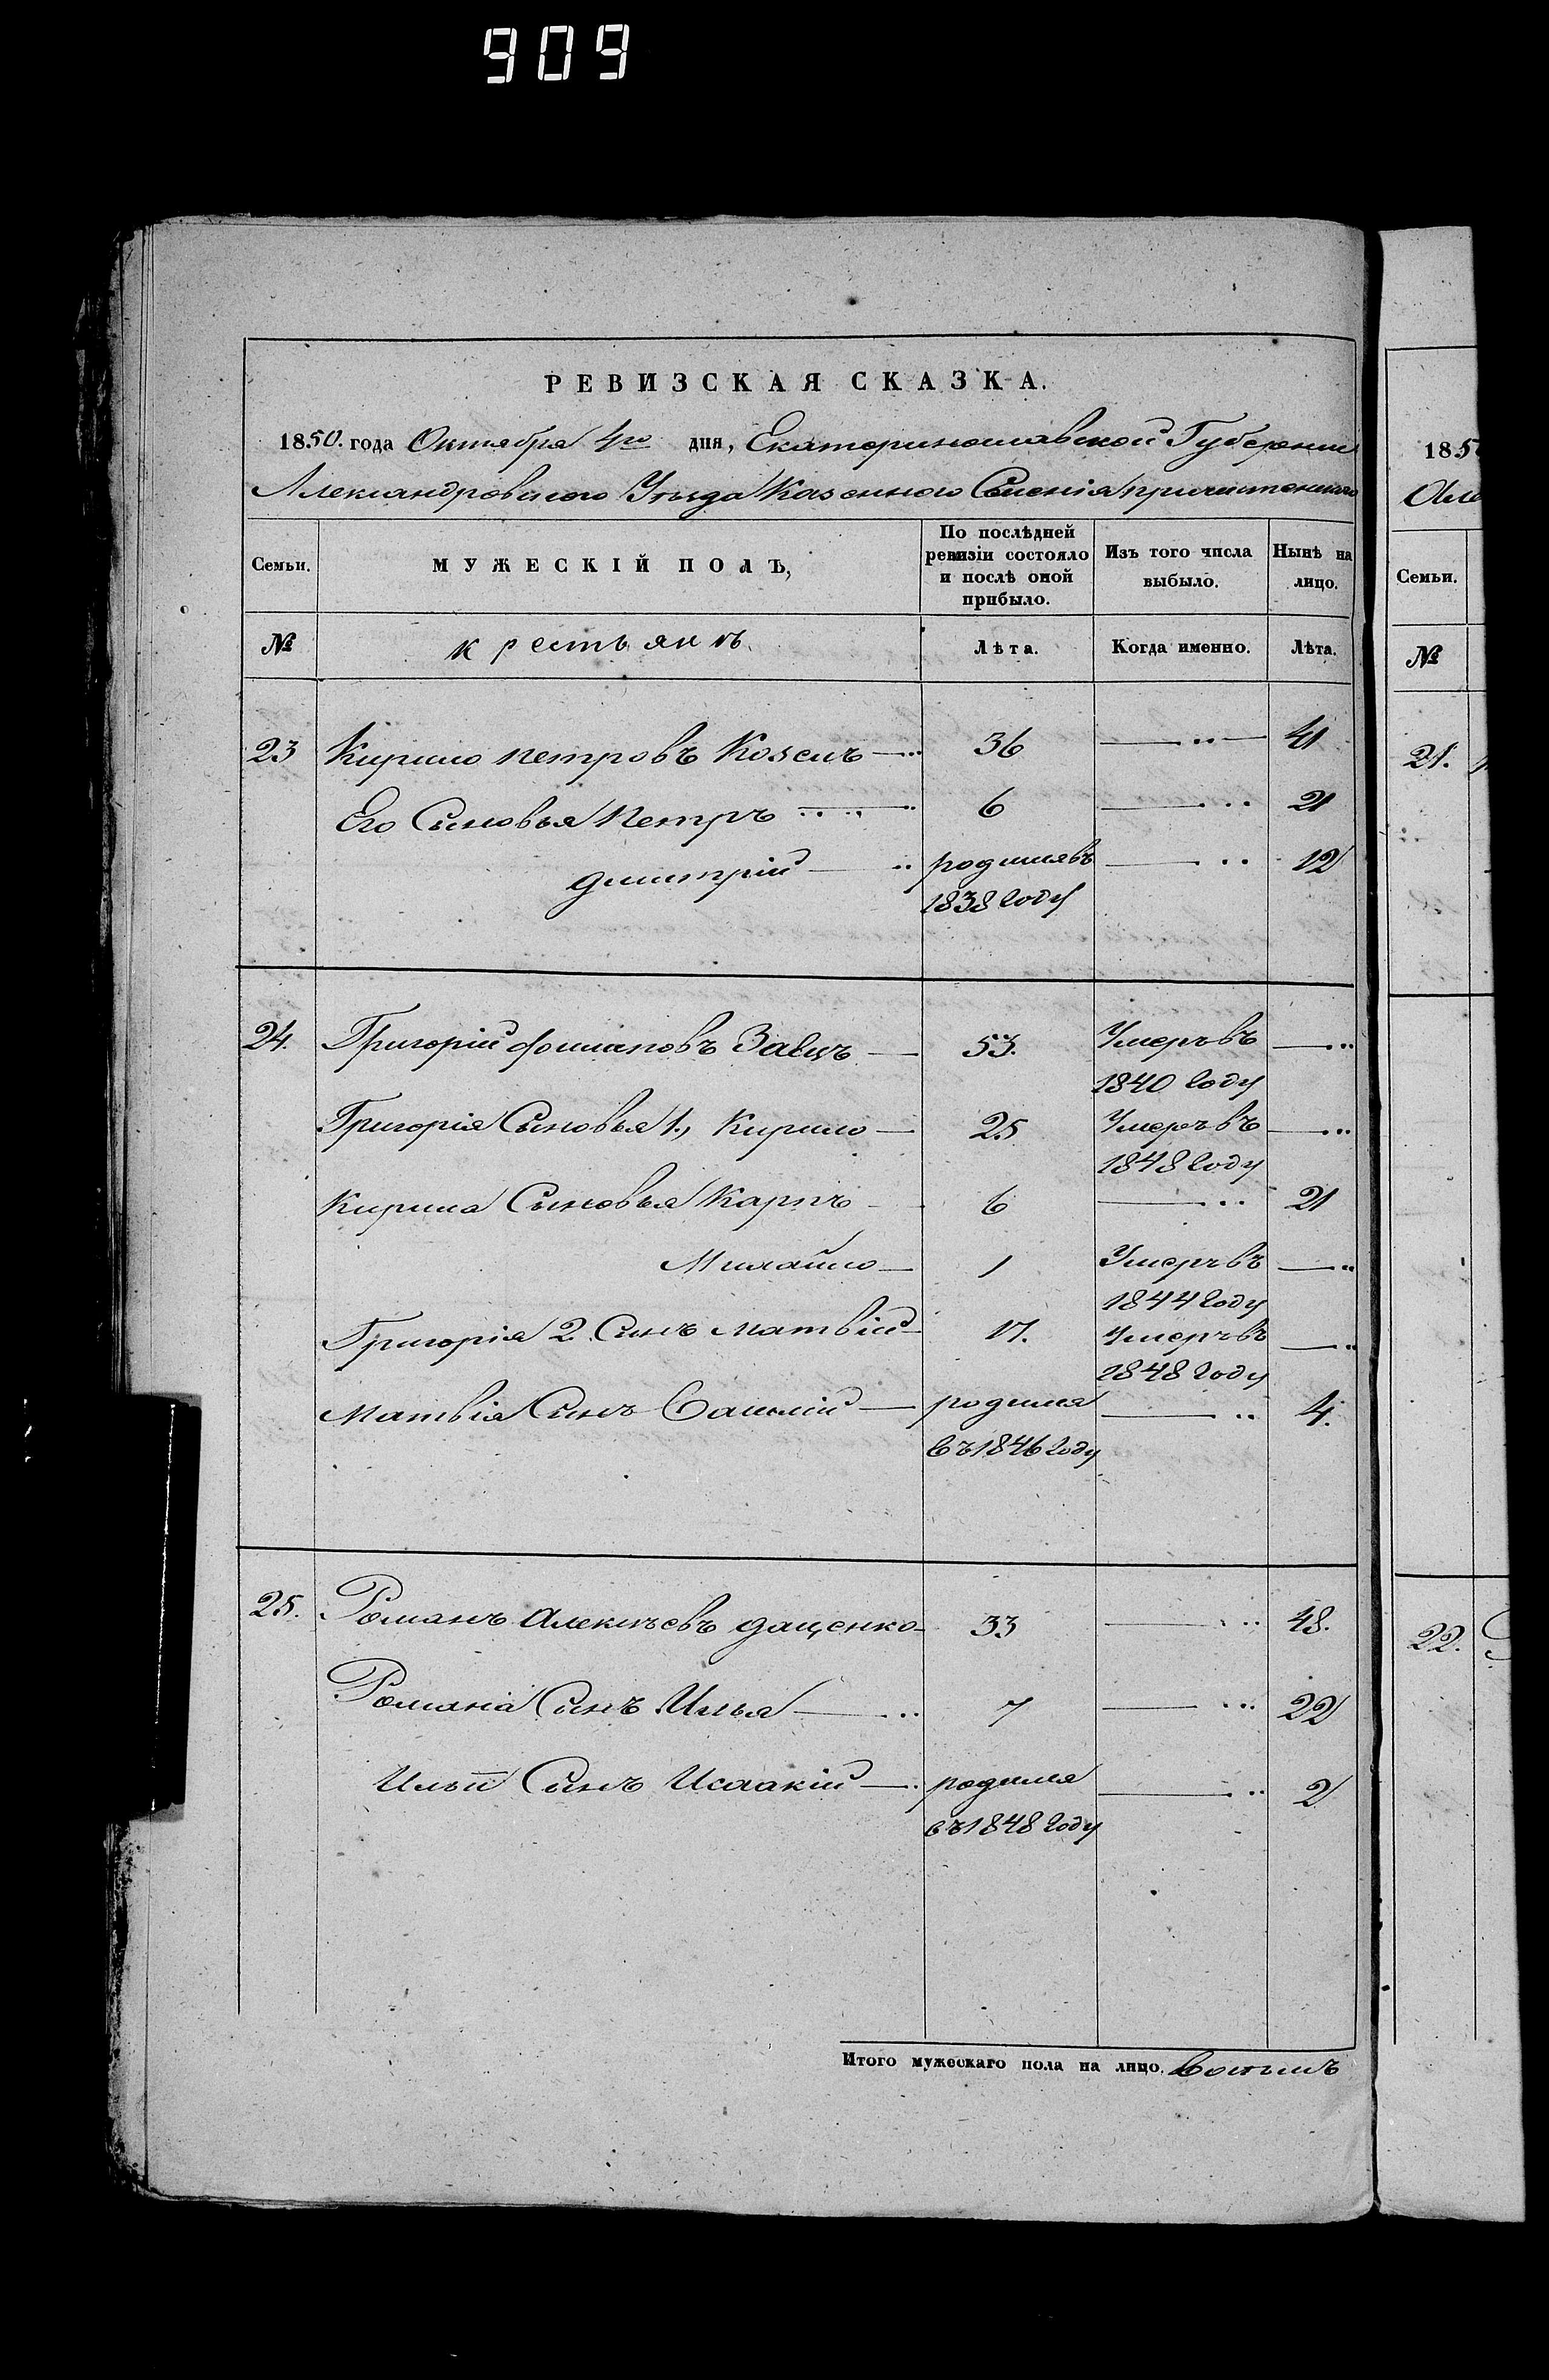 909
РЕВИЗСКАЯ СКАЗКА.
1850. года Октября 4го дня, Екатеринославской Губернии
Александровскаго Уѣзда Казеннаго Селенія
Семьи. МУЖЕСКІЙ ПОЛЪ, По послѣдней ревизіи состояло и послѣ оной прибыло. Изъ того числа выбыло. Нынѣ на лицо.
№ крестьянъ. Лѣта. Когда именно. Лѣта.
23 Кирило Петровъ Козелъ 36 41
Его Сыновья Петръ 6 21
Димитрій родился въ 12
1838 году
24. Григорій Фомановъ Заецъ 53. Умеръ въ
1840 году
Григорія Сыновья 1., Кирило 25 Умеръ въ
1848 году
Кирила Сыновья Карпъ 6 21
Михайло 1 Умеръ въ
1844 году
Григорія 2. Сынъ Матвій 17. Умеръ въ
1848 году
Матвія Сынъ Василій родился 4.
въ 1846 году
25. Романъ Алексѣевъ Даценко 33 48.
Романа Сынъ Илья 7 22
Ильи Сынъ Исаакій родился 2
въ 1848 году
Итого мужескаго пола на лицо. Восемь
185
Але
Семьи.
№
21.
22.